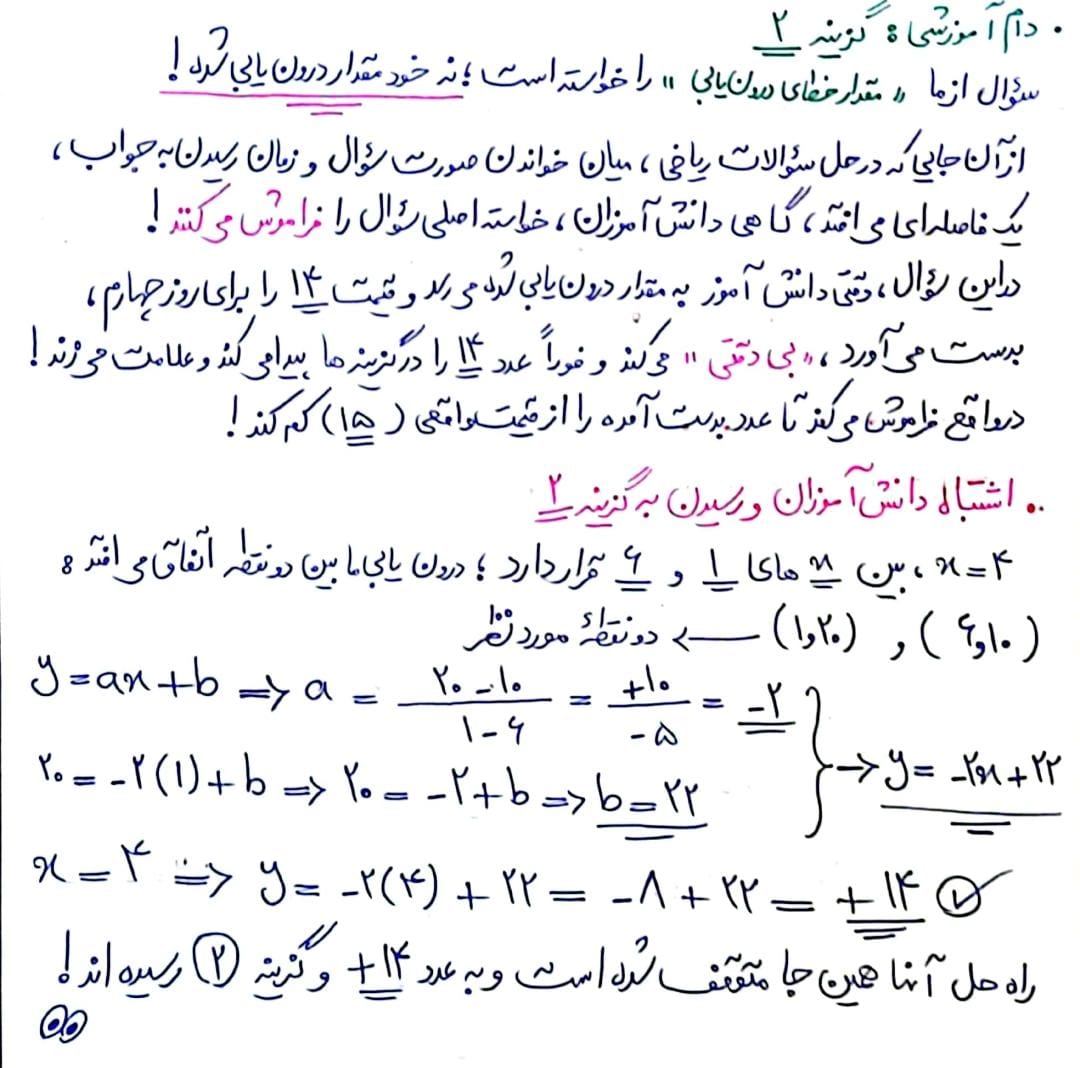 • دام آموزشی: گزینه ۲
سؤال از ما «مقدار خطای درون‌یابی» را خواسته است؛ نه خود مقدار درون یابی شده!
از آن جایی که در حل سؤالات ریاضی، میان خواندن صورت سؤال و زمان رسیدن به جواب،
یک فاصله‌ای می افتد، گاهی دانش آموزان، خواسته اصلی سؤال را فراموش می کنند!
در این سؤال، وقتی دانش آموز به مقدار درون یابی شده می رسد و قیمت ۱۴ را برای روز چهارم،
بدست می آورد، «بی دقتی» می‌کند و فوراً عدد ۱۴ را در گزینه ها پیدا می کند و علامت می زند!
در واقع فراموش می‌کند تا عدد بدست آمده را از قیمت واقعی (۱۵) کم کند!
•• اشتباه دانش آموزان و رسیدن به گزینه ۲
x=۴، بین x های ۱ و ۶ قرار دارد؛ درون یابی ما بین دو نقطه اتفاق می افتد:
(۶و۱۰) , (۱و۲۰) ← دو نقطهٔ مورد نظر
y=ax+b => a = (۲۰-۱۰)/(۱-۶) = (+۱۰)/(-۵) = -۲
۲۰ = -۲(۱)+b => ۲۰ = -۲+b => b=۲۲ } → y= -۲x+۲۲
x=۴ => y= -۲(۴) + ۲۲ = -۸ + ۲۲ = +۱۴ ✓
راه حل آنها همین جا متوقف شده است و به عدد +۱۴ و گزینه ۲ رسیده اند!